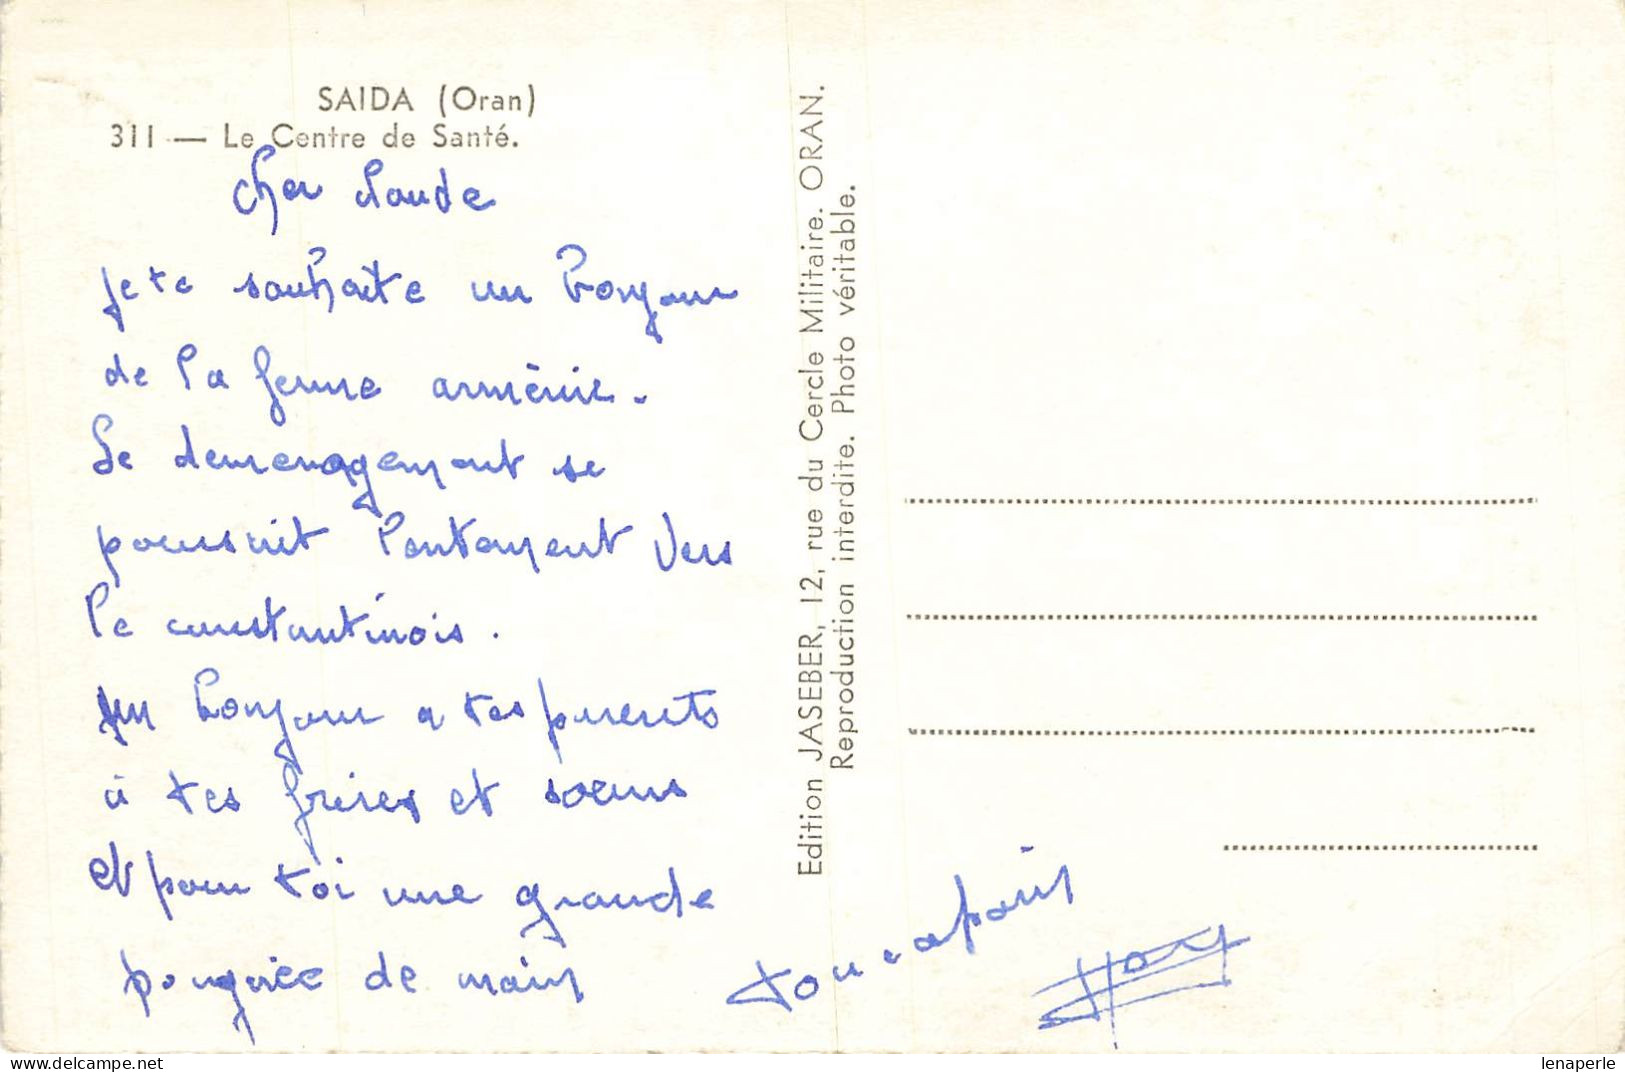 SAIDA (Oran)
311 — Le Centre de Santé.
cher claude
je te souhaite un bonjour
de la ferme arménie.
Le demenagement se
poursuit lentement vers
le constantinois.
un bonjour a tes parents
à tes frères et soeurs
et pour toi une grande
poignée de main
ton copain
Edition JASEBER, 12, rue du Cercle Militaire. ORAN.
Reproduction interdite. Photo véritable.
lenaperle